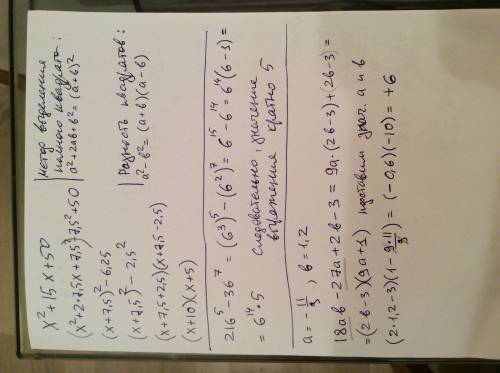 x² + 15x + 50
(x² + 2·7,5x + 7,5²) - 7,5² + 50
(x + 7,5)² - 6,25
(x + 7,5)² - 2,5²
(x + 7,5 + 2,5)(x + 7,5 - 2,5)
(x + 10)(x + 5)
метод выделения
полного квадрата:
a² + 2ab + b² = (a + b)²
Разность квадратов:
a² - b² = (a + b)(a - b)
216⁵ - 36⁷ = (6³)⁵ - (6²)⁷ = 6¹⁵ - 6¹⁴ = 6¹⁴(6 - 1) =
= 6¹⁴·5 следовательно, значение
выражения кратно 5
a = - 11/9 ; b = 1,2
18ab - 27a + 2b - 3 = 9a·(2b - 3) + (2b - 3) =
= (2b - 3)(9a + 1) подставим знач. a и b
(2·1,2 - 3)(1 - 9·11/9) = (-0,6)(-10) = +6